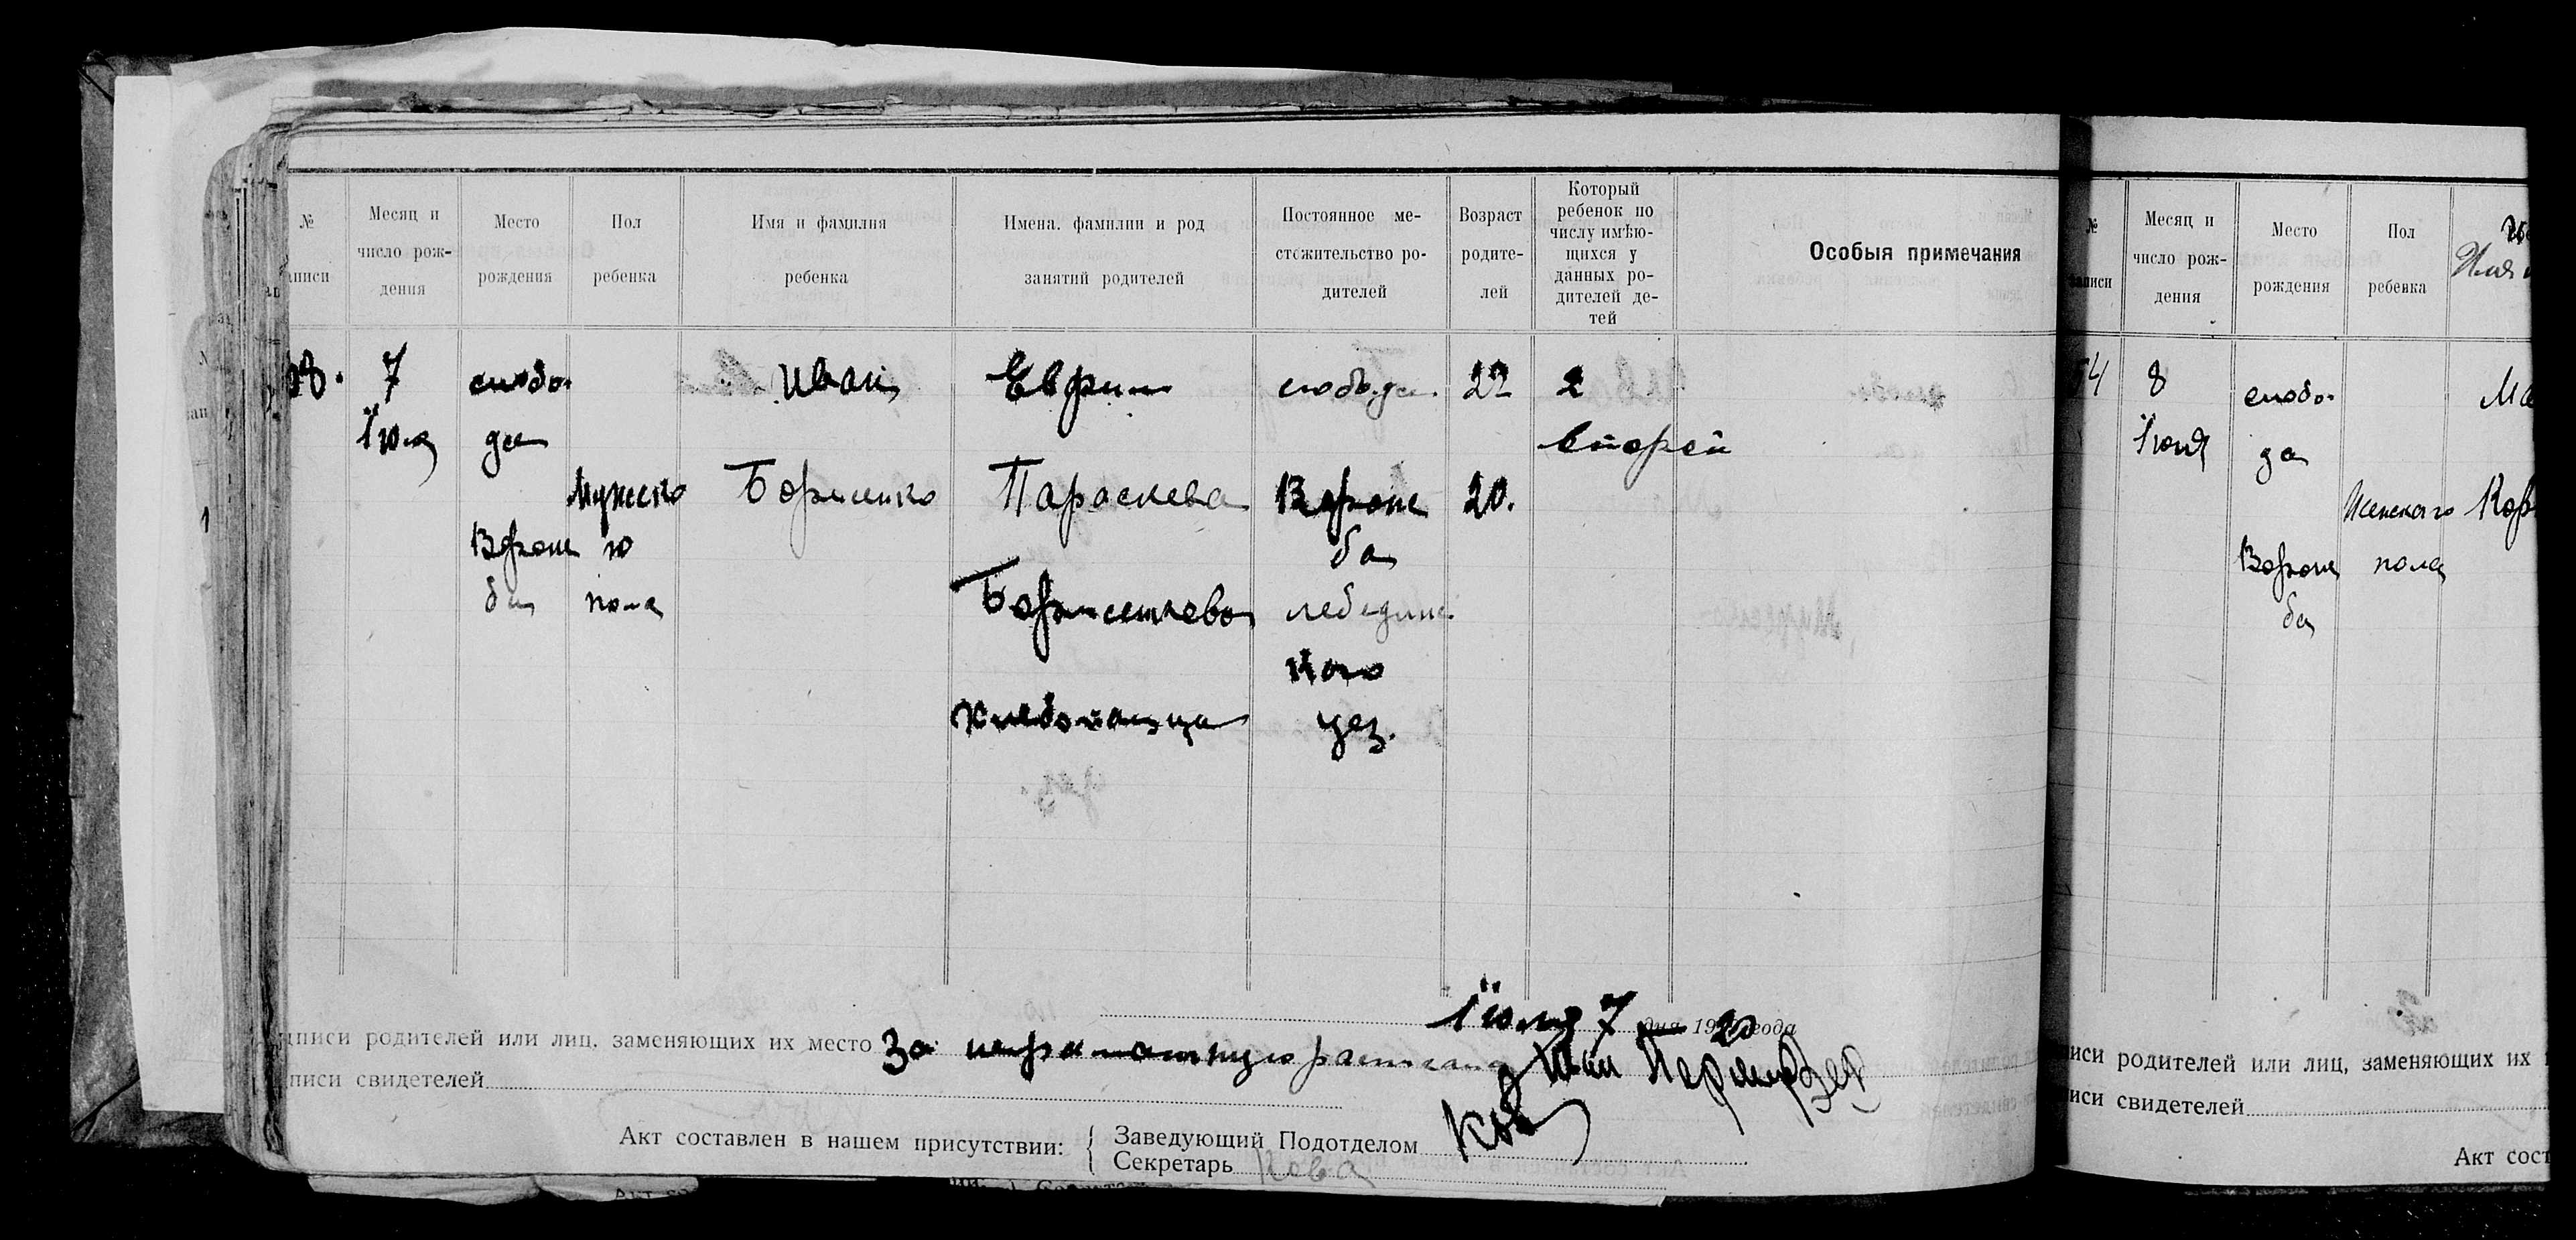 №
аписи
Месяц и
число рож-
дения
Место
рождения
Пол
ребенка
Имя и фамилия
ребенка
Имена. фамилии и род
занятий родителей
Постоянное ме-
стожительство ро-
дителей
Возраст
родите-
лей
Который
ребенок по
числу имѣю-
щихся у
данных ро-
дителей де-
тей
Особыя примечания
7
Іюля
слобо-
да
Ворож
ба
Мужско
го
пола
Иван
Борисенко
Ефим
Параскева
Борисенкова
Хлебопашцы
слобода
Ворож
ба
лебедин
кого
уез.
22
20.
2
второй
Іюля 7 дня 1920 года
писи родителей или лиц. заменяющих их место За неграмотную расписал
писи свидетелей
Акт составлен в нашем присутствии: { Заведующий Подотделом
Секретарь
№
аписи
Месяц и
число рож-
дения
Место
рождения
Пол
ребенка
54
8
Іюля
слобо-
да
Ворож
ба
Женскаго
пола
иси родителей или лиц, заменяющих их
иси свидетелей
Акт сост